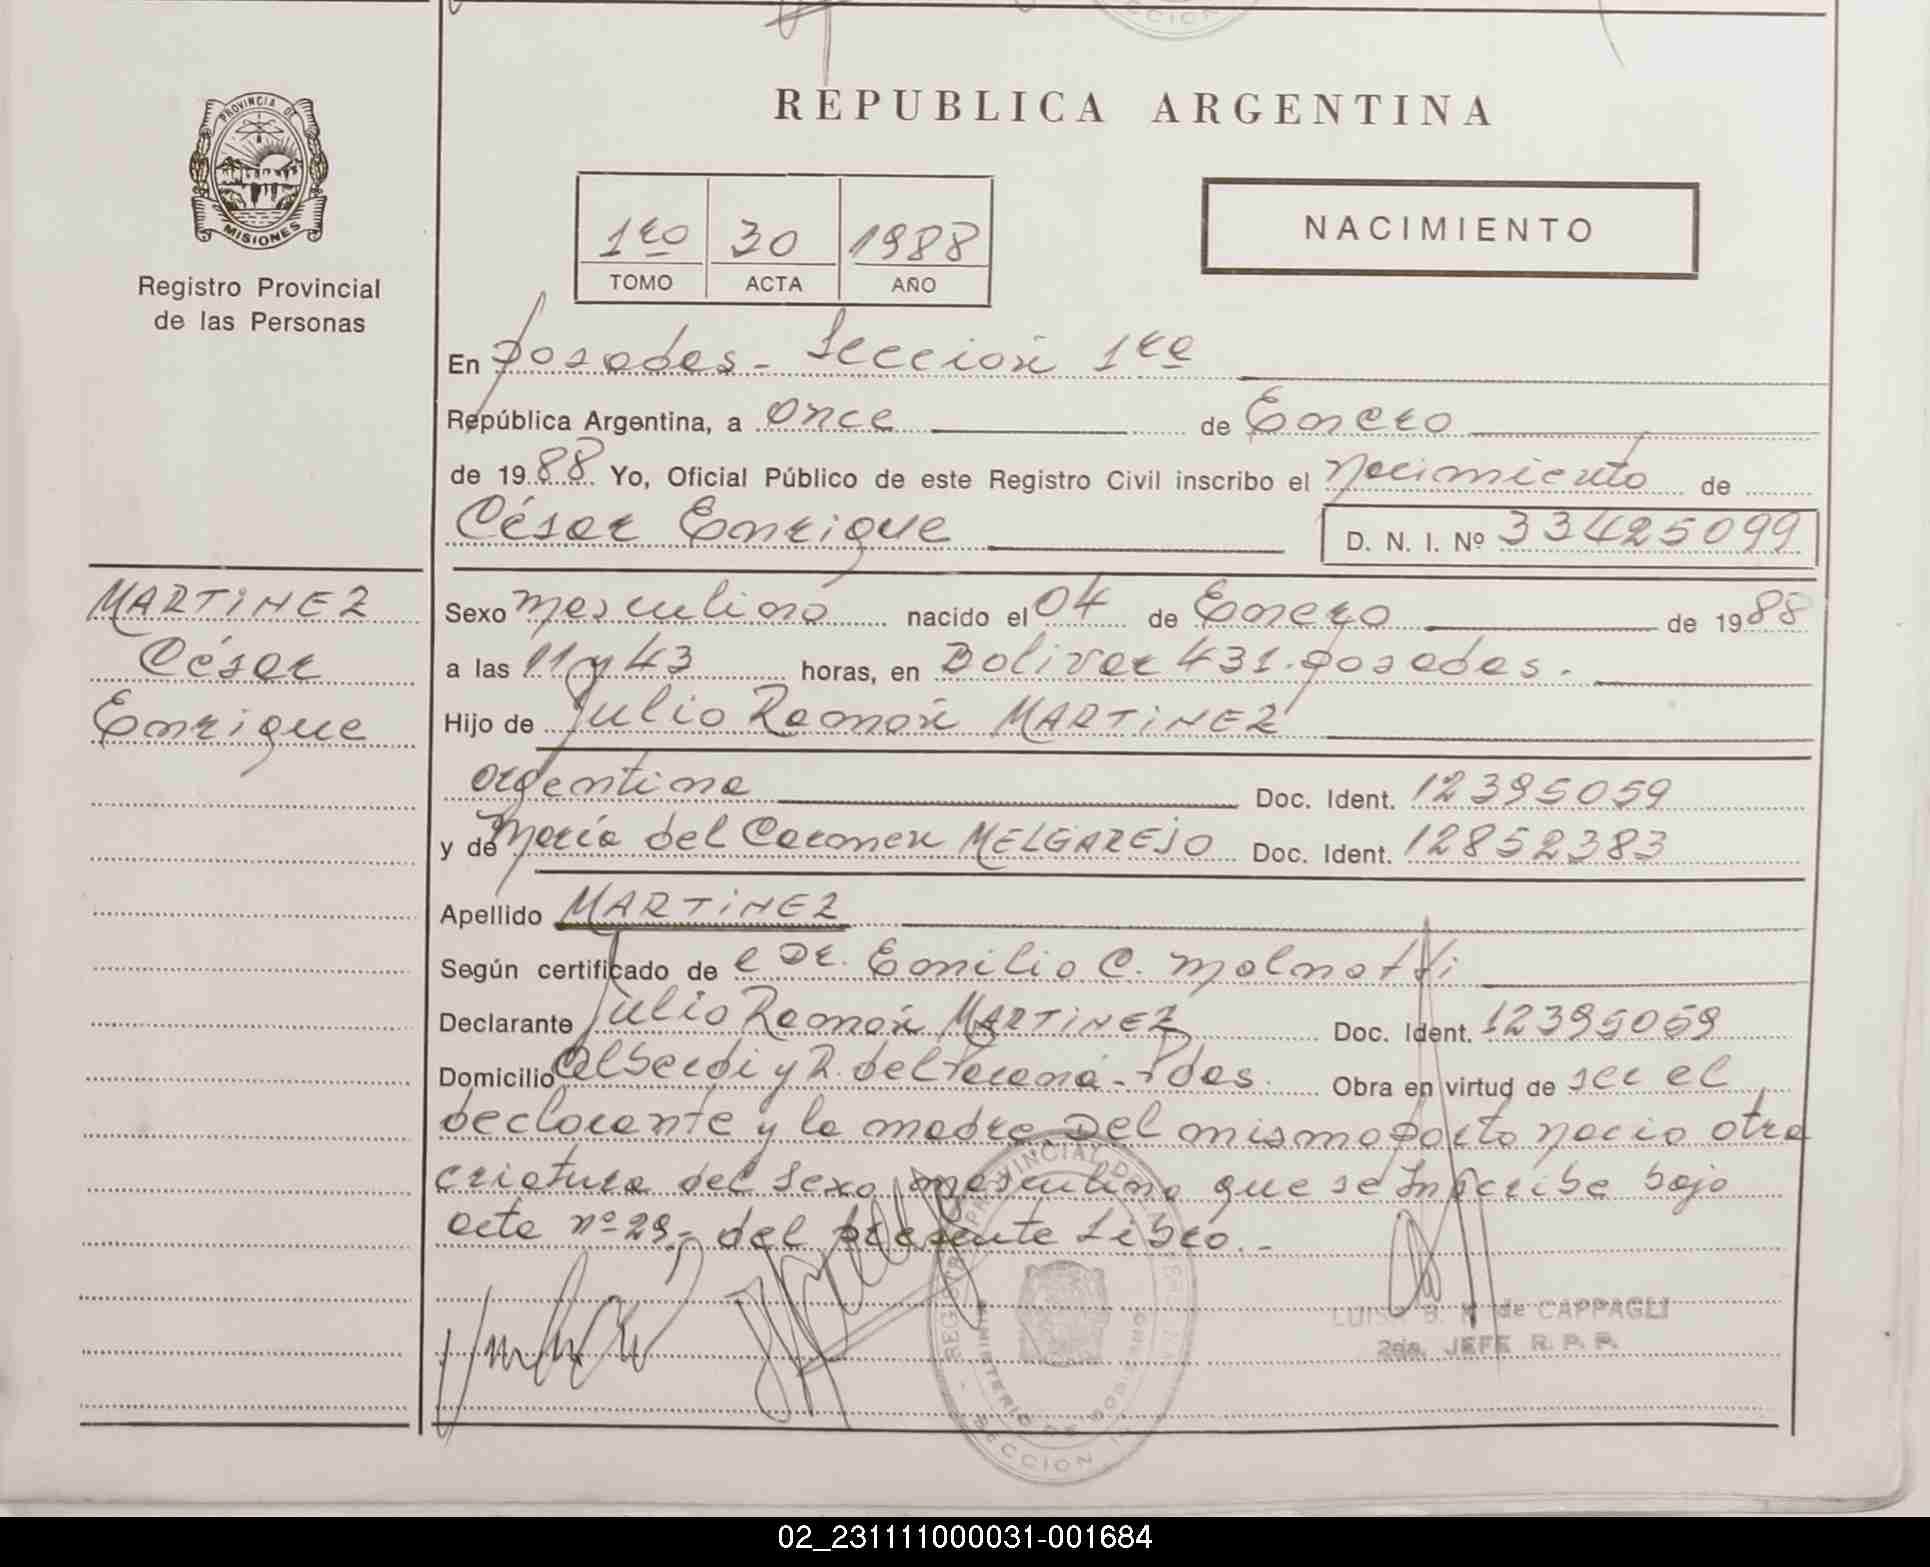 REPUBLICA ARGENTINA
PROVINCIA DE
MISIONES
Registro Provincial
de las Personas
1ro 30 1988
TOMO ACTA AÑO
NACIMIENTO
En Posadas - Sección 1ra
República Argentina, a once de Enero
de 1988 Yo, Oficial Público de este Registro Civil inscribo el nacimiento de
César Enrique D. N. I. Nº 33425099
MARTINEZ
César
Enrique
Sexo masculino nacido el 04 de Enero de 1988
a las 11 y 43 horas, en Bolivar 431. Posadas.
Hijo de Julio Ramón MARTINEZ
argentina Doc. Ident. 12395059
y de María del Carmen MELGAREJO Doc. Ident. 12852383
Apellido MARTINEZ
Según certificado de e Dr. Emilio C. Molnatti
Declarante Julio Ramón MARTINEZ Doc. Ident. 12395059
Domicilio Alberdi y R. del Paraná - Pdas. Obra en virtud de ser el
declarante y la madre. Del mismo parto nacio otra
criatura del sexo masculino que se Inscribe bajo
acta nº 29.- del presente Libro.-
de CAPPAGLI
JEFE R. P. P.
SECCION
02_231111000031-001684